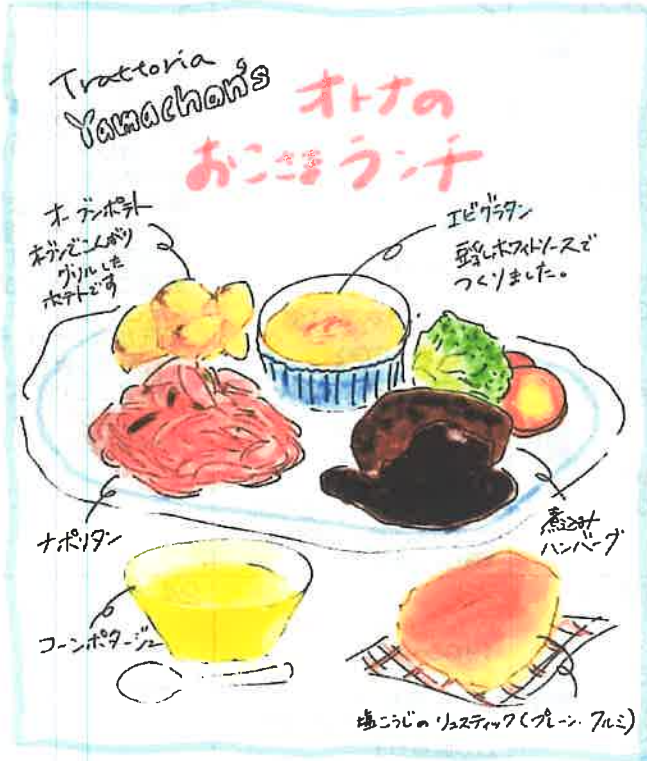 Trattoria
Yamachan's
オトナの
おこさまランチ
オーブンポテト
オーブンでこんがり
グリルした
ポテトです
エビグラタン
豆乳ホワイトソースで
つくりました。
ナポリタン
煮込み
ハンバーグ
コーンポタージュ
塩こうじのリュスティック(プレーン・クルミ)